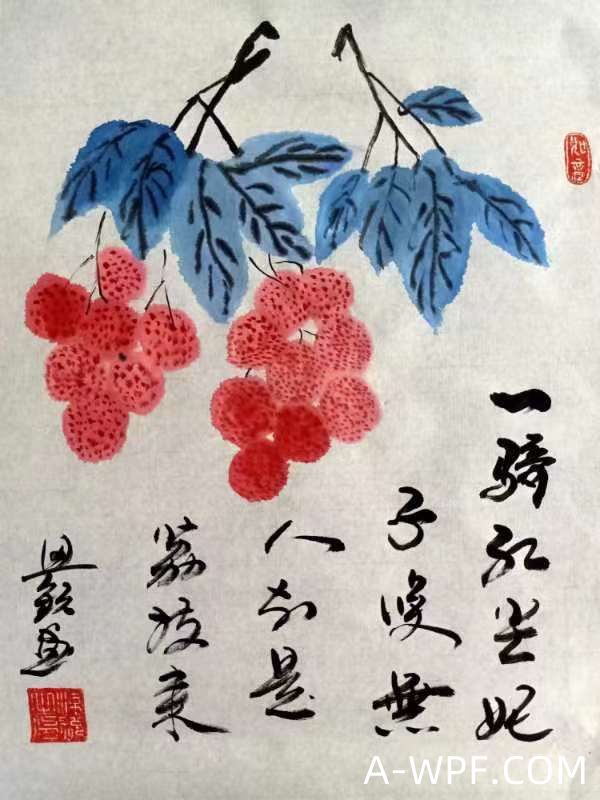 一騎红尘妃
子笑無
人知是
荔枝来
A-WPF.COM